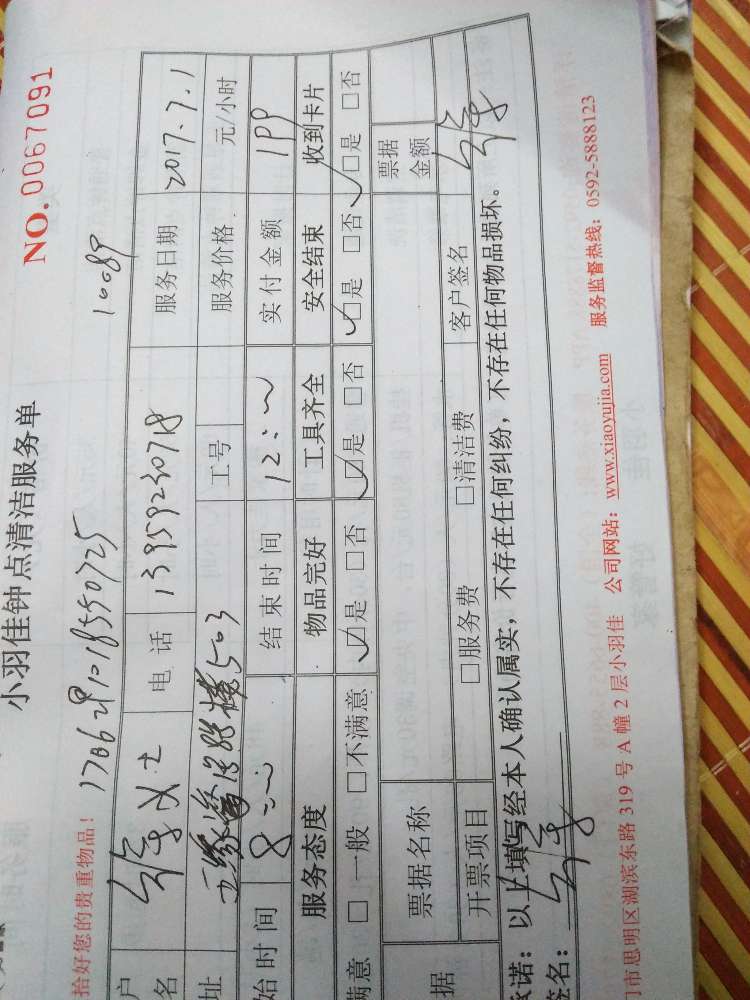 小羽佳钟点清洁服务单 NO.0067091
拾好您的贵重物品! 10089
户名 女士 电话 13959230718 服务日期 2017.7.1
址 503 工号 服务价格 元/小时
始时间 8: 结束时间 12: 实付金额 199
服务态度 物品完好 工具齐全 安全结束 收到卡片
满意 □一般 □不满意 □是 □否 □是 □否 □是 □否 □是 □否
据 票据名称 票据金额
开票项目 □服务费 □清洁费 客户签名
承诺:以上填写经本人确认属实,不存在任何纠纷,不存在任何物品损坏。
签名:
门市思明区湖滨东路 319 号 A 幢 2 层小羽佳 公司网站:www.xiaoyujia.com 服务监督热线:0592-5888123